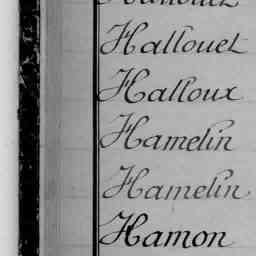 Hallouet
Halloux
Hamelin
Hamelin
Hamon